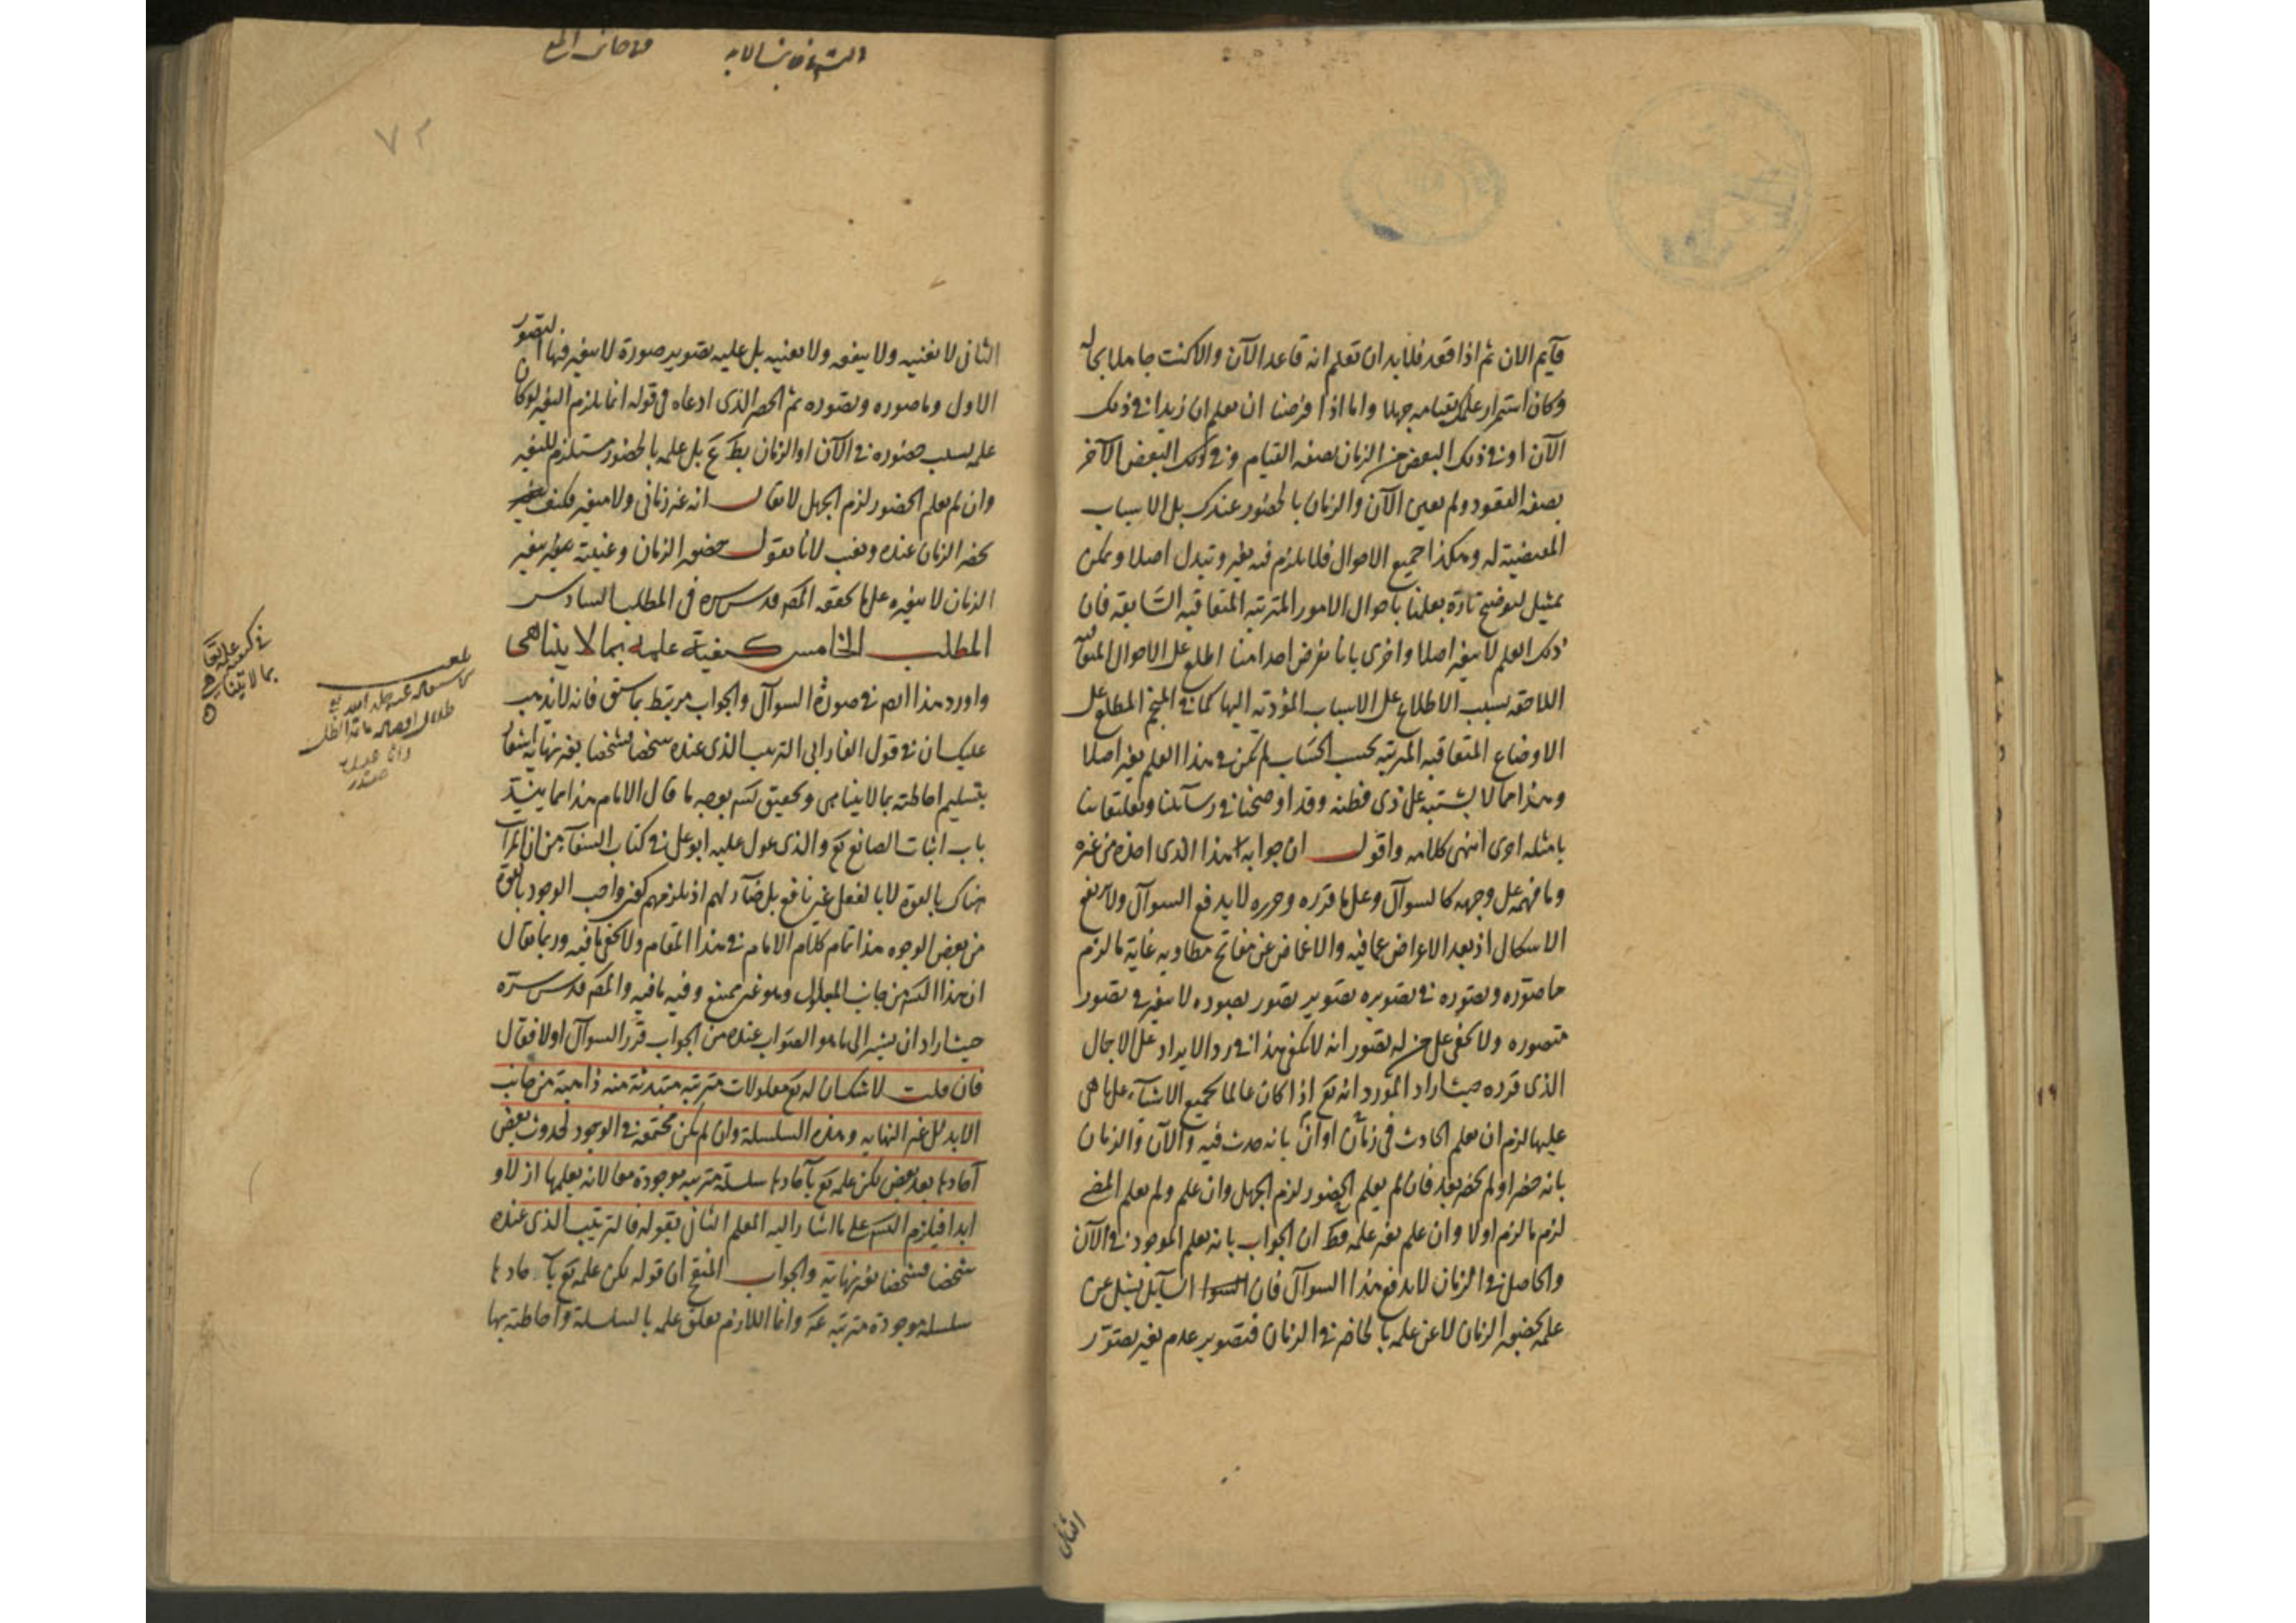 قآيم الان ثم اذا قعد فلابد ان تعلم انه قاعد الآن والا كنت جاهلا بحاله
وكان استمرار علمك بقيامه جهلا واما اذا فرضنا ان يعلم ان زيدا في ذلك
الآن او في ذلك البعض من الزمان بصفه القيام وفي ذلك البعض الآخر
بصفه القعود ولم يعين الآن والزمان بالحضور عندك بل الاسباب
المقتضية له وهكذا جميع الاحوال فلا يلزم فيه تغير وتبدل اصلا ويمكن
تمثيل لتوضيح تارة بعلمنا باحوال الامور المترتبه المتعاقبه السّابقة فان
ذلك العلم لا يتغير اصلا واخرى بانا نفرض احدا منا اطلع على الاحوال المتعاقبه
اللاحقه بسبب الاطلاع على الاسباب المؤديه اليها كما في المنجم المطلع على
الاوضاع المتعاقبه المترتبه بحسب الحساب لم يكن في هذا العلم تغير اصلا
وهذا مما لا يشتبه على ذي فطنه وقد اوضحنا في رسآيلنا وتعليقاتنا
بامثله اخرى انتهى كلامه واقول ان جوابه هذا الذى اخذه من غيره
وما فهمه على وجهه كالسوآل وعلى ما قرره وحرره لا يدفع السوآل ولا يرفع
الاشكال اذ بعد الاعراض عما فيه والاغماض عن مفاتح مطاويه غاية ما لزم
ما صوّره وتصوّره في تصويره تصوير تصور بصوره لا يتغير في تصور
متصوره ولا يخفى على من له تصور انه لا يكفى هذا في رد الايراد على الاجمال
الذى قرره حيث اراد المورد انه تع اذا كان عالما بجميع الاشيآء على ما هى
عليها لزم ان يعلم الحادث في زمان او آن بانه حدث فيه والآن والزمان
بانه حضر او لم يحضر بعد فان لم يعلم الحضور لزم الجهل وان علم ولم يعلم المضى
لزم ما لزم اولا وان علم تغير علمه فظ ان الجواب بانه يعلم الموجود في الآن
والحاصل في الزمان لا يدفع هذا السوآل فان السآيل يسئل عن
علمه بحضور الزمان لا عن علمه بالحاضر في الزمان فتصوير عدم تغير تصوّر
الثانى
٧٢
الثانى لا يغنيه ولا ينفعه ولا يعنيه بل عليه تصوير صورة لا يتغير فيها التصور
الاول وما صوره وتصوره ثم الحصر الذى ادعاه في قوله انما يلزم التغير لو كان
علمه بسبب حضوره في الآن او الزمان بل علمه بالحضور مستلزم للتغير
وان لم يعلم الحضور لزم الجهل لا يقال انه غير زمانى ولا متغير فكيف
يحضر الزمان عنده ويغيب لانا نقول حضور الزمان وغيبته بتغير
الزمان لا بتغيره على ما حققه المص قدس سره في المطلب السادس
المطلب الخامس كيفية علمه بما لا يتناهى
واورد هذا المص في صورة السوآل والجواب مرتبط بما سبق فانه لا يذهب
عليك ان في قول الفارابى الترتيب الذى عنده شخصا فشخصا بغير نهاية اشعارا
بتسليم احاطته بما لا يتناهى وتحقيق لتس بوجه ما قال الامام هذا مما ينسد
باب اثبات الصانع تع والذى عول عليه ابو على في كتاب الشفآء من ان الترا
هناك بالقوة لا بالفعل غير نافع بل ضآر لهم اذ يلزمهم كون واجب الوجود بالقوة
من بعض الوجوه هذا تمام كلام الامام في هذا المقام ولا يخفى ما فيه وربما يقال
ان هذا التس من جانب المعلول وهو غير ممتنع وفيه ما فيه والمص قدس سرّه
حيث اراد ان يشير الى ما هو الصّواب عنده من الجواب قرّر السوآل اولا فقال
فان قلت لا شك ان له تع معلولات مترتبه مبتدئة منه ذاهبة من جانب
الابد الى غير النهايه وهذه السلسلة وان لم يكن مجتمعه في الوجود لحدوث بعض
آحادها بعد بعض لكن علمه تع بآحادها سلسلة مترتبه موجودة معا لانه يعلمها ازلا و
ابدا فيلزم التس على ما اشار اليه المعلم الثانى بقوله فالترتيب الذى عنده
شخصا فشخصا بغير نهاية والجواب المنع ان قوله لكن علمه تع بآحادها
سلسلة موجودة مترتبه مم وانما اللازم تعلق علمه بالسلسلة واحاطته بها
في كيفية علمه تعا
بما لا يتناهى